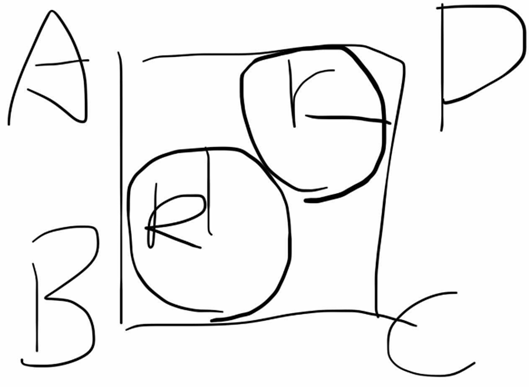 A
D
r
R
B
C